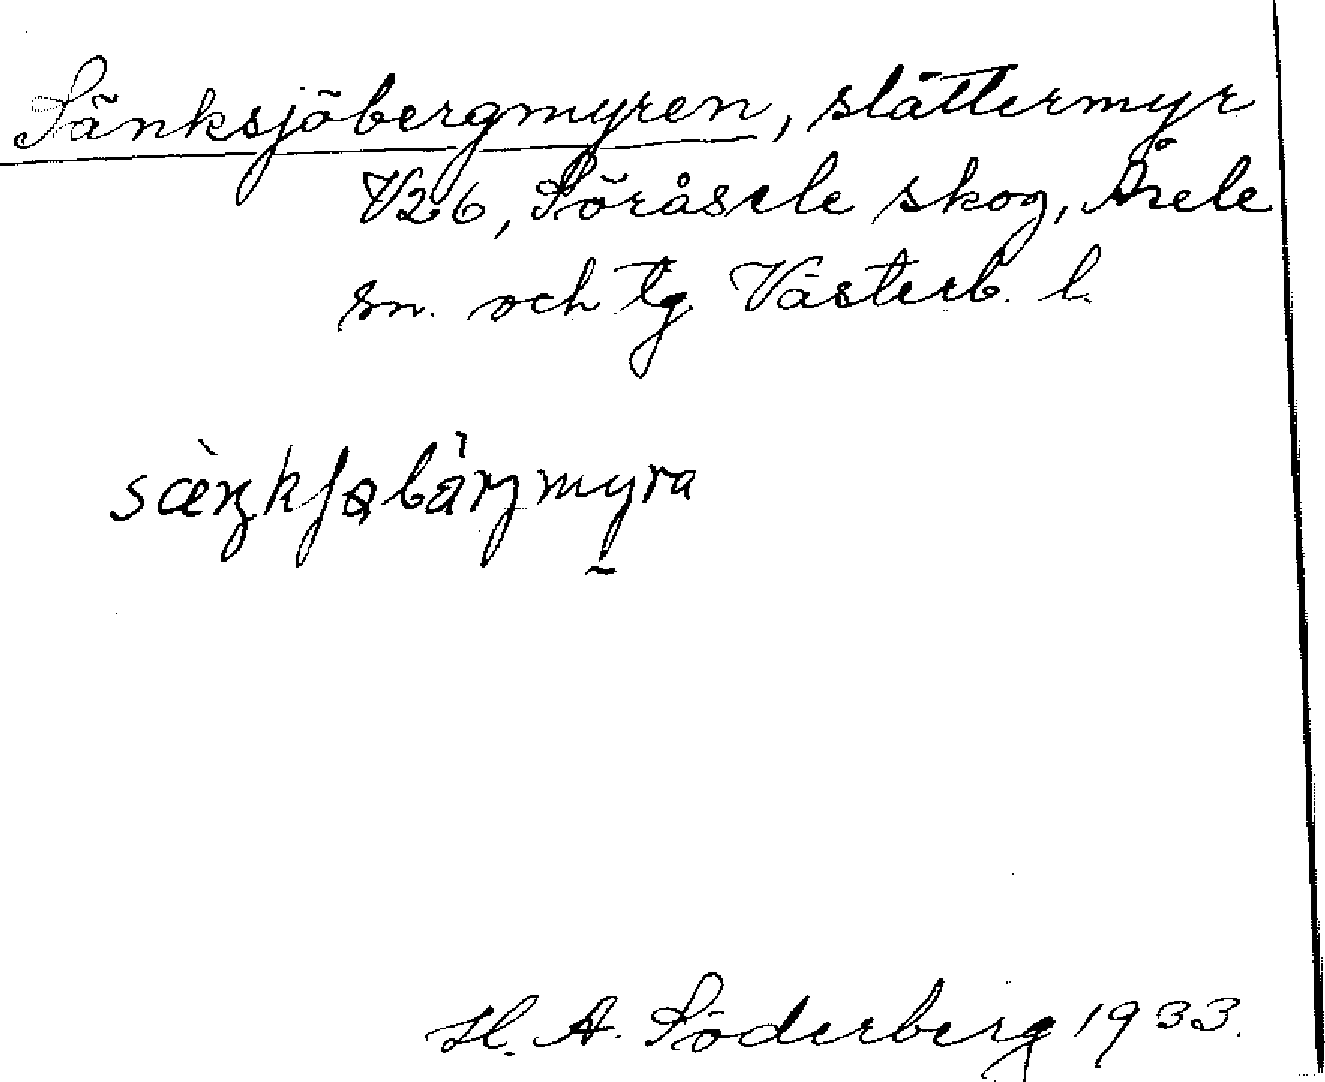 Sänksjöbergmyren, slåttermyr
V26, Söråsele skog, Åsele
sn. och tg Västerb. l.
sæ̀ŋkʃøbä̀rjmyra
H. A. Söderberg 1933.